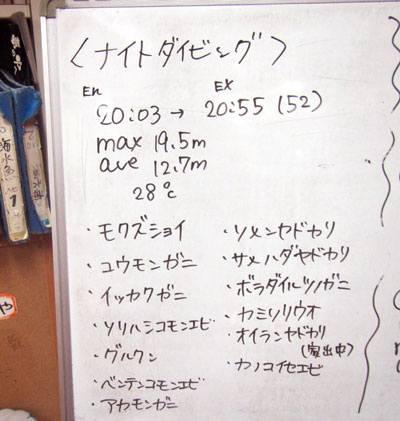 〈ナイトダイビング〉
En EX
20:03 → 20:55 (52)
max 19.5m
ave 12.7m
28℃
・モクズショイ
・ユウモンガニ
・イッカクガニ
・ソリハシコモンエビ
・グルクン
・ベンテンコモンエビ
・アカモンガニ
・ソメンヤドカリ
・サメハダヤドカリ
・ボラダイルツノガニ
・カミソリウオ
・オイランヤドカリ
(家出中)
・カノコイセエビ
や
1